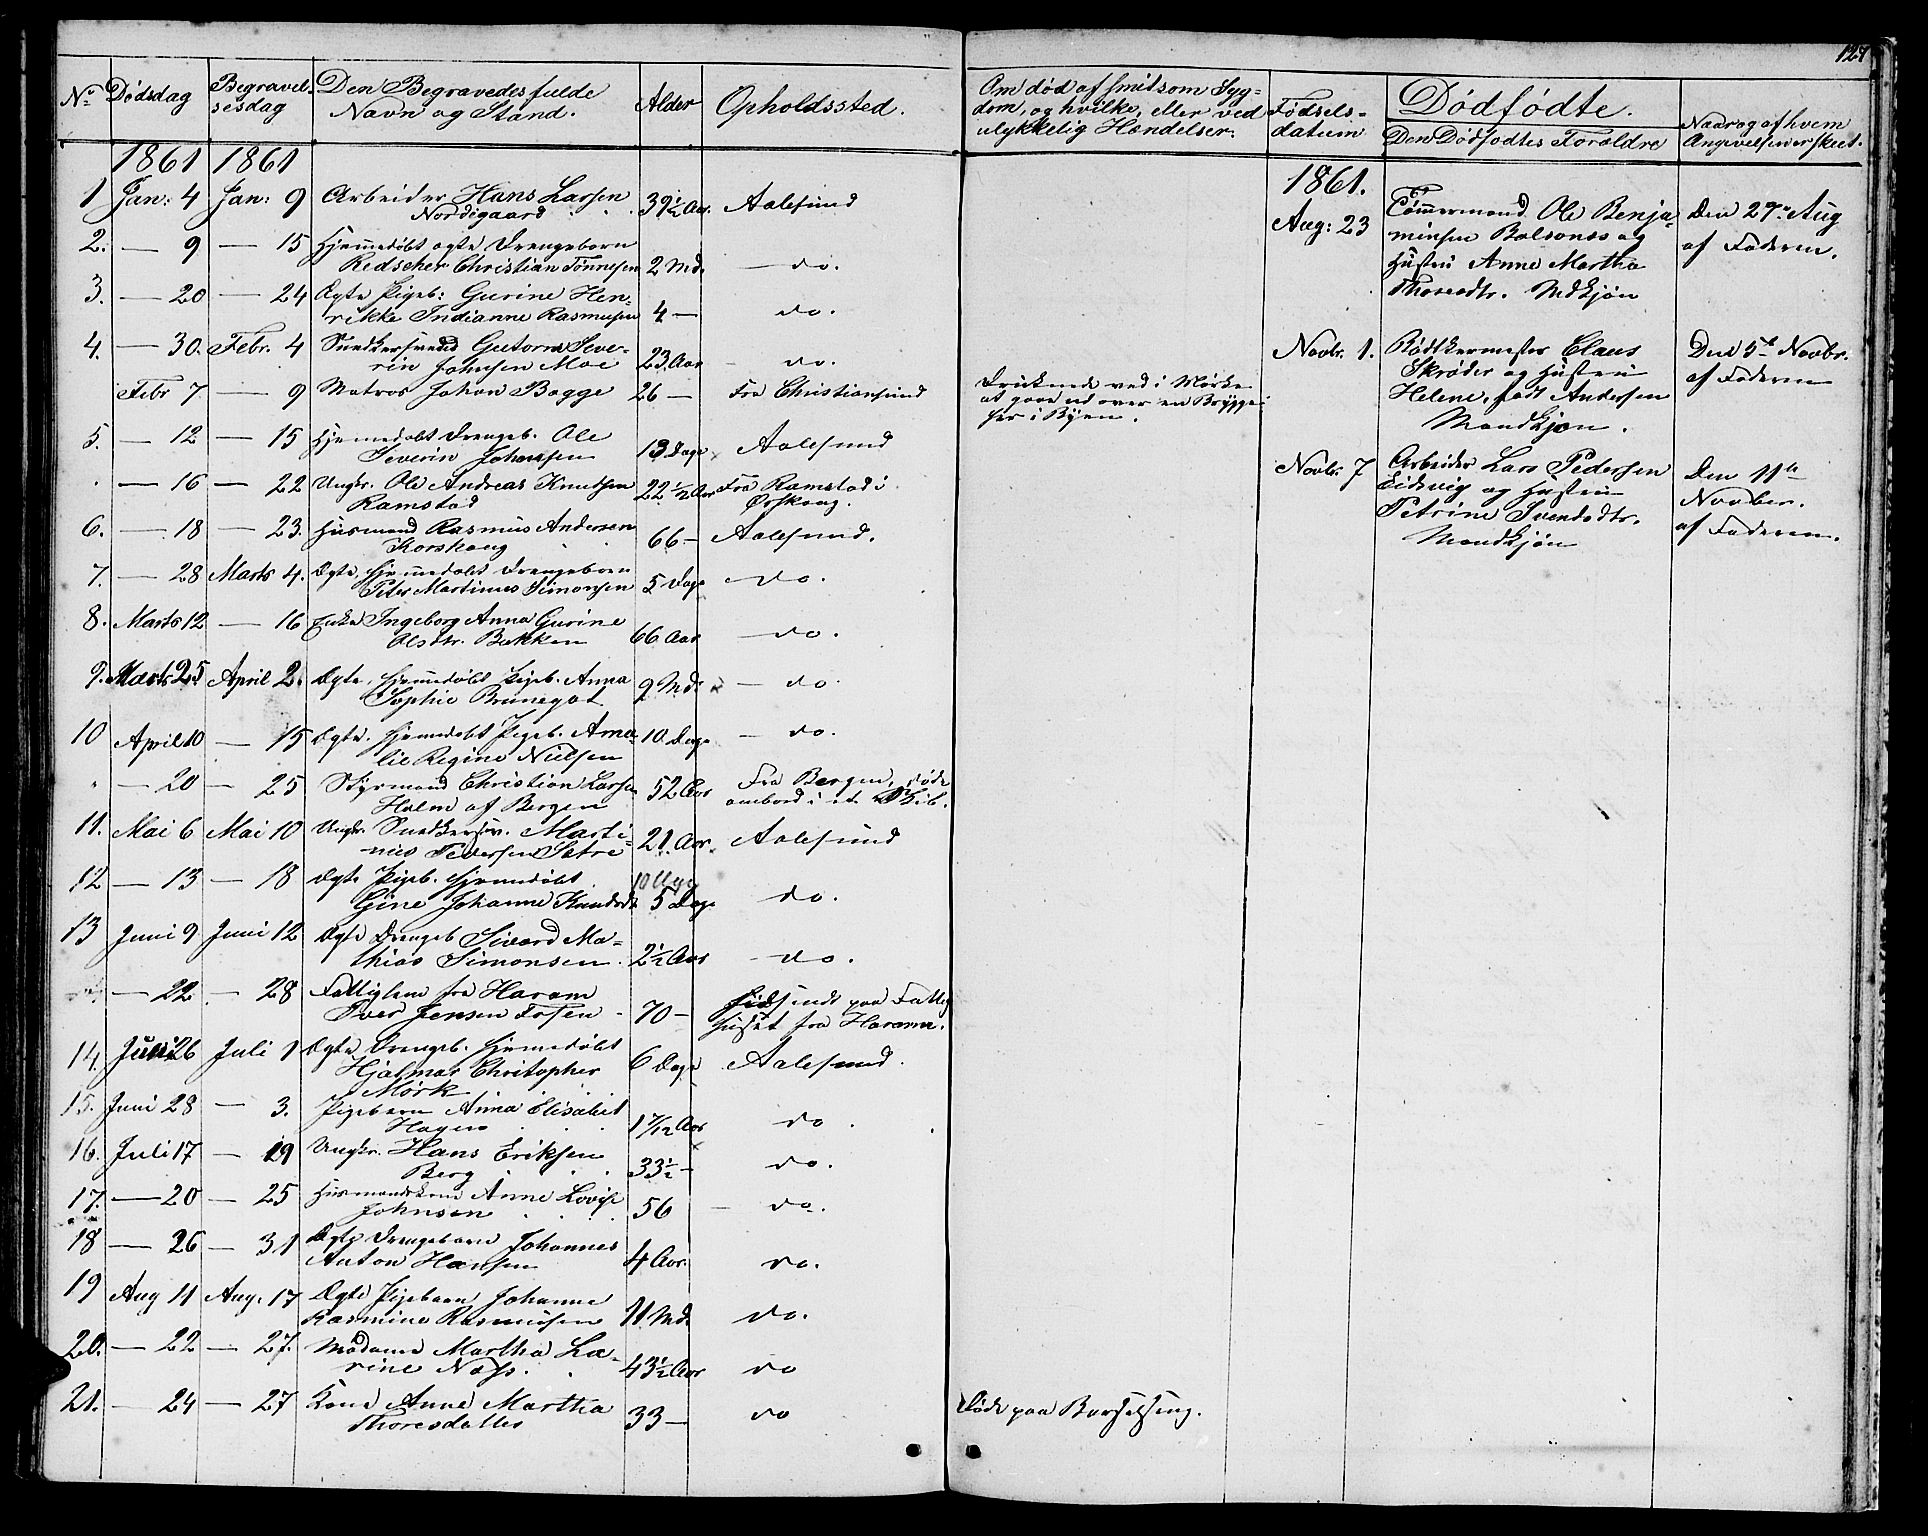 127
No Dødsdag Begravelsesdag Den Begravedes fulde Navn og Stand. Alder Opholdssted.
1861 1861
1 Jan: 4 Jan: 9 Arbeider Hans Larsen
Nordigaard 39½ Aar. Aalesund
2. — 9 — 15 Hjemmedøbt ægte Drengebarn
Redscher Christian Tønnesen 2 Md. — do.
3. — 20 — 24 Ægte Pigeb: Gurine Hen-
rikke Indianne Rasmusen 4 — do.
4. — 30. Febr. 4 Snedkersvend Gutorm Seve-
rin Johnsen Moe 23. Aar — do.
Febr 7 — 9 Matros Johan Bagge 26 — Fra Christiansund
5. — 12 — 15 Hjemmedøbt Drengeb. Ole
Severin Johansen 13 Dage Aalesund
— 16 — 22 Ungkr. Ole Andreas Knutsen
Ramstad 22 ½ Aar Fra Ramstad i
Ørskoug.
6. — 18 — 23. Husmand Rasmus Andersen
Korskoug 66 — Aalesund.
7. — 28 Marts 4. Ægte hjemmedøbt Drengebarn
Peter Martinus Simonsen 5 Dage — do.
8. Marts 12 — 16 Enke Ingeborg Anna Gurine
Olsdtr. Bakken 66 Aar — do.
9. Marts 25 April 2. Ægte, hjemmedøbt Pigeb. Anna
Sophie Brunegot 9 Md. — do.
10 April 10 — 15 Ægte. hjemmedøbt Pigeb. Ama-
lie Regine Nielsen 10 Dage — do.
— 20 — 25 Styrmand Christian Larsen
Holm af Bergen 52 Aar Fra Bergen, døde
ombord i et Skib.
11. Mai 6 Mai 10 Ungkr. Snedkersv. Marti-
nus Pedersen Sætre 21. Aar. Aalesund
12 — 13 — 18 Ægte Pigeb. hjemmedøbt
Gine Johanne Knudsdt 10 Uge
5 Dage do.
13 Juni 9 Juni 12 Ægte Drengeb Sivard Ma-
thias Simonsen. 2½ Aar — do.
— 22 — 28 Fattiglem fra Haram
Iver Jensen Fosen 70 — hidsendt paa Fattig
huset fra Haram.
14. Juni 26 Juli 1 Ægte Drengeb. hjemmedøbt
Hjalmar Chritopher
Mørk 6 Dage Aalesund.
15. Juni 28 — 3. Pigebarn Anna Elisabet
Hagen 1 7/12 Aar do.
16. Juli 17 — 19 Ungkr. Hans Eriksen
Berg 33½ — do.
17. — 20 — 25 Husmandskone Anne Lovise
Johnsen 56 — do.
18 — 26 — 31 Ægte Drengebarn Johannes
Anton Hansen 4 Aar. do.
19 Aug 11 Aug. 17 Ægte Pigebarn Johanne
Rasmine Rasmusen 11 Md. do.
20. — 22 — 27. Madame Martha La-
rine Næss. 43½ Aar do
21. — 24 — 27 Kone Anne Martha
Thoresdatter 33 — do
Om død af smitsom Syg-
dom, og hvilke, eller ved
ulykkelig Hændelser.
Fødsels-
datum
Dødfødte.
Den Dødfødtes Forældre
Naar og af hvem
Angivelsen er skeet.
Druknede ved i Mørke
at gaae ud over en Brygge
her i Byen.
Døde paa Barselseng.
1861.
Aug: 23 Tømmermand Ole Benja-
minsen Balsones og
Hustru Anne Martha
Thoresdtr. Mdkjøn
Den 27de Aug
af Faderen.
Novbr. 1. Bødtkermester Claus
Skrøder og Hustru
Helene, født Andersen
Mandkjøn.
Den 5te Novbr.
af Faderen
Novbr. 7 Arbeider Lars Pedersen
Eidsvig og Hustru
Petrine Svendsdtr.
Mandkjøn
Den 11te
November.
af Faderen.